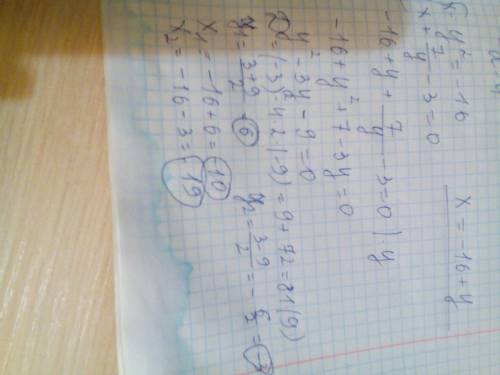 x - y² = -16
x + 7/y - 3 = 0
x = -16 + y
-16 + y + 7/y - 3 = 0 | · y
-16 + y² + 7 - 3y = 0
y² - 3y - 9 = 0
D = (-3)² - 4·2·(-9) = 9 + 72 = 81 (9)
y₁ = 3+9/2 = 6 y₂ = 3-9/2 = -6/2 = -3
x₁ = -16 + 6 = -10
x₂ = -16 - 3 = -19